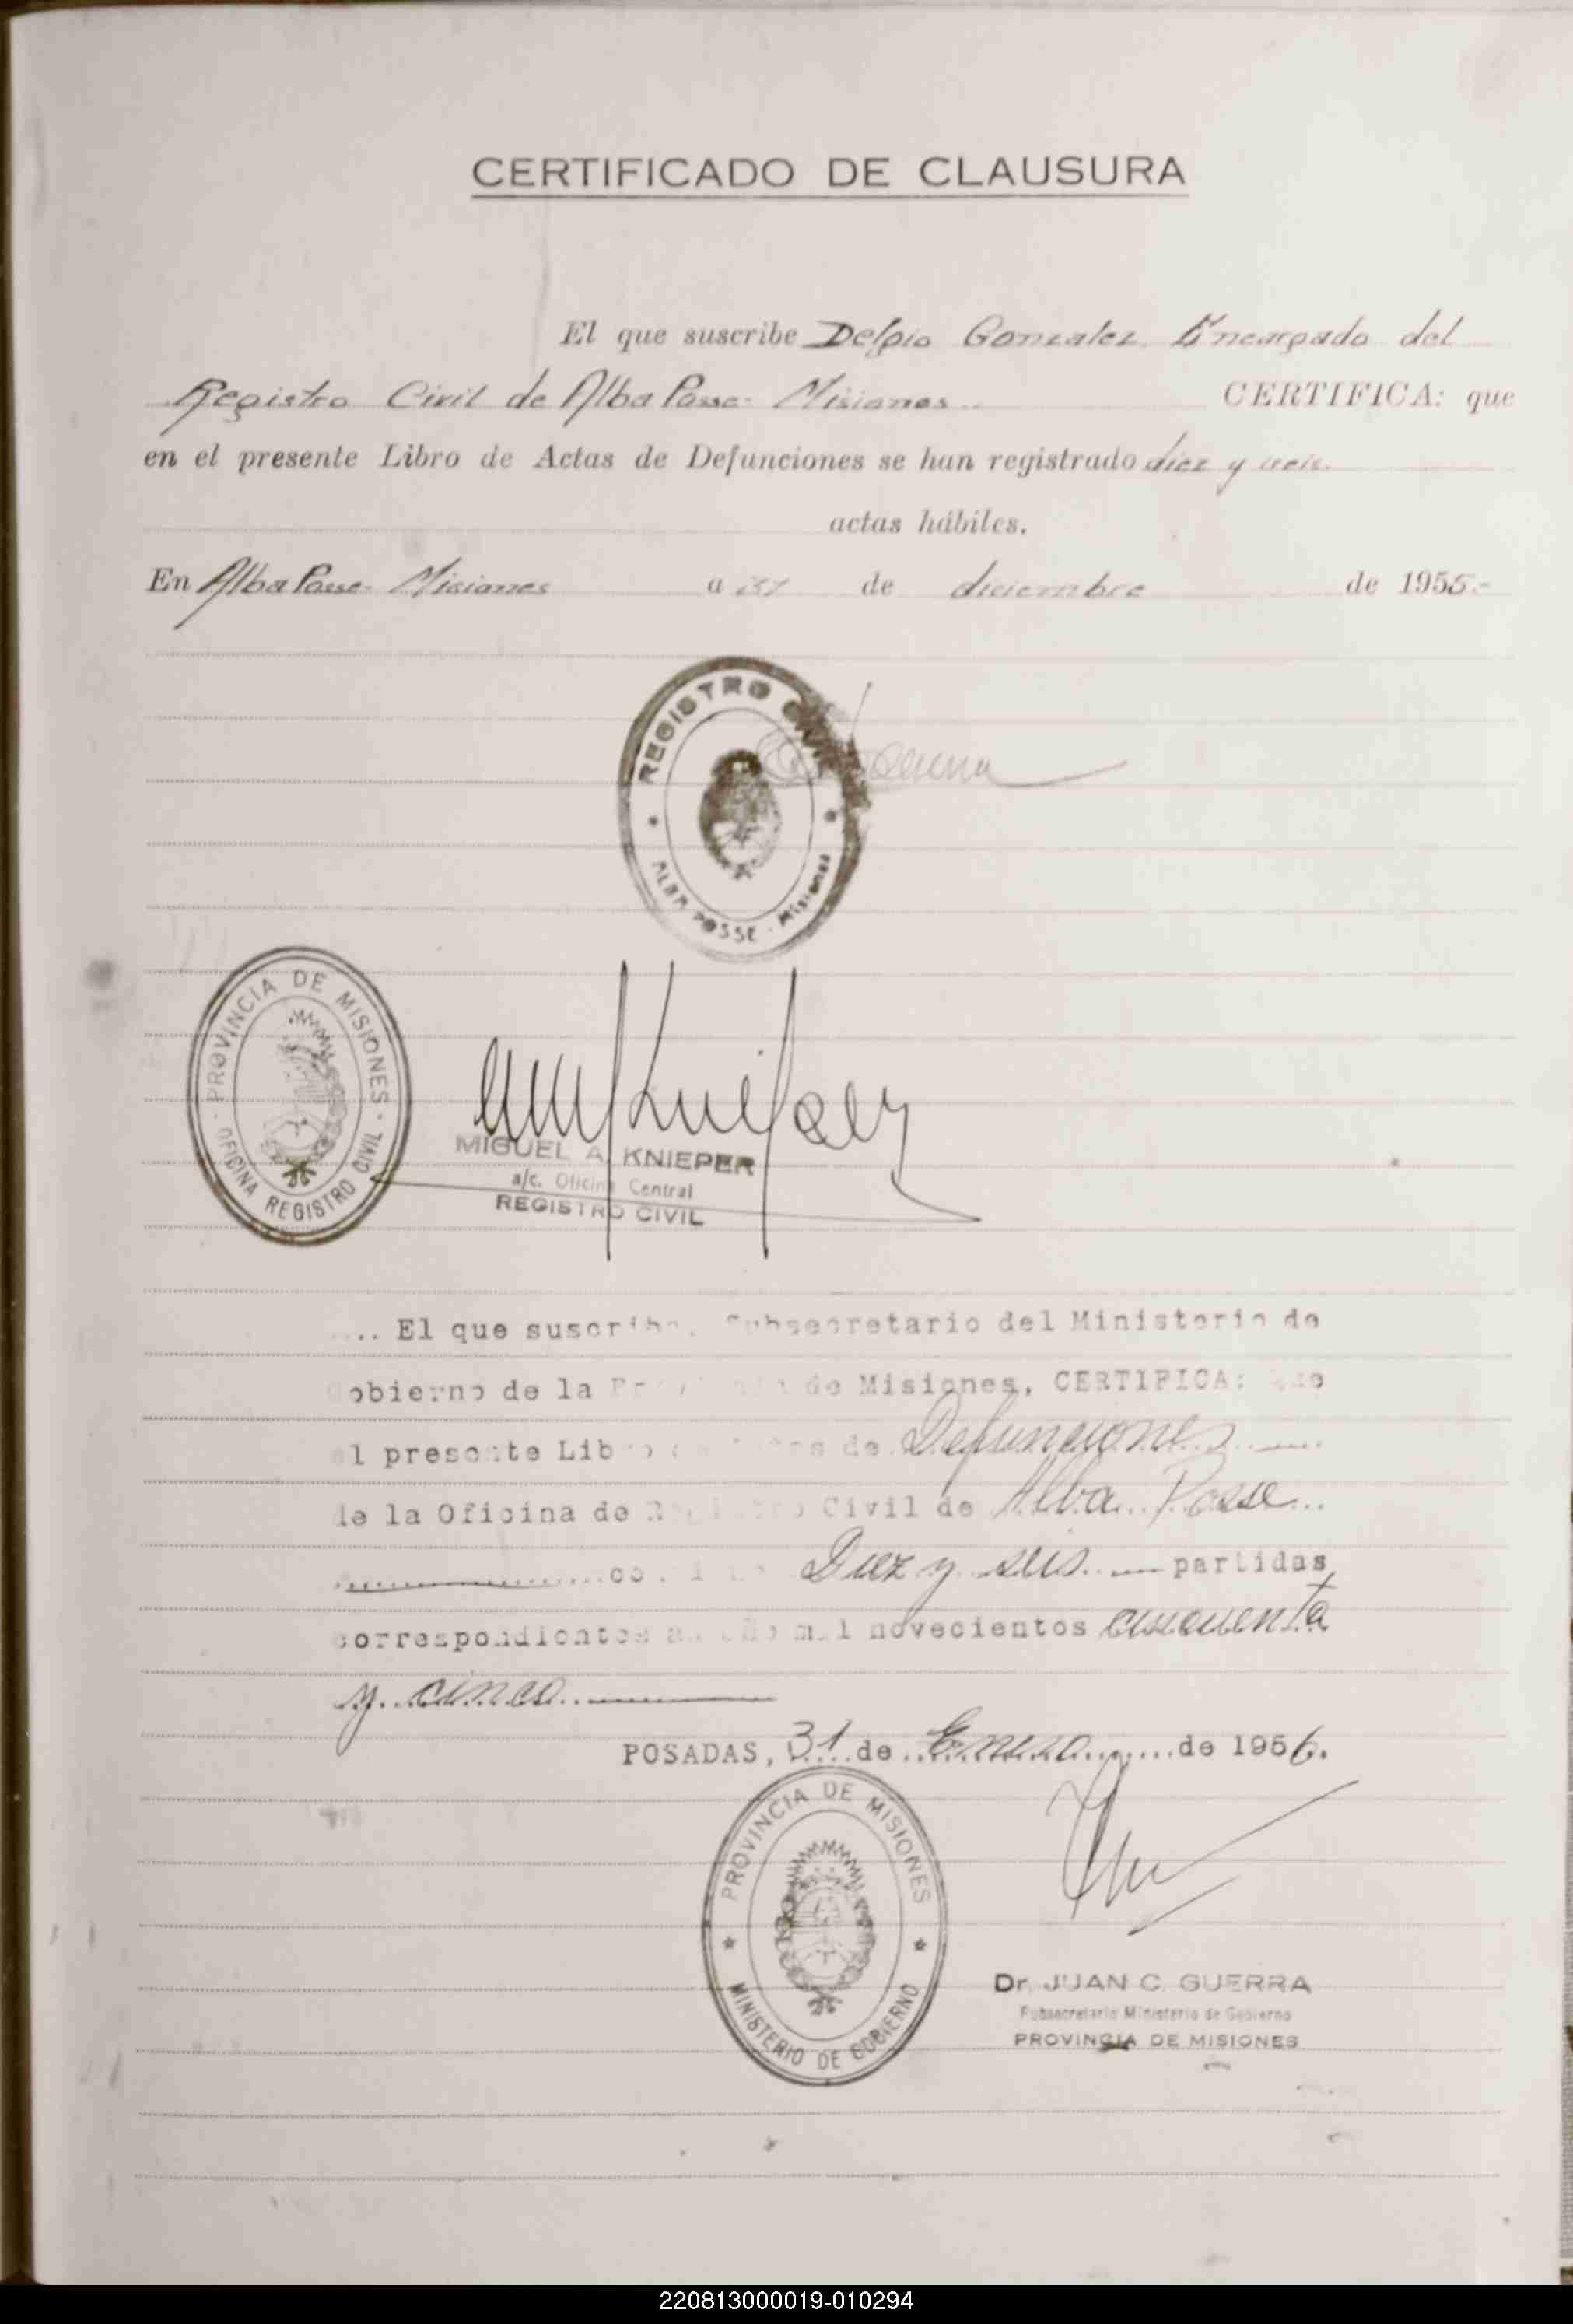 CERTIFICADO DE CLAUSURA
El que suscribe Delpio Gonzalez Encargado del
Registro Civil de Alba Posse - Misiones CERTIFICA: que
en el presente Libro de Actas de Defunciones se han registrado diez y seis.
actas hábiles.
En Alba Posse - Misiones a 31 de diciembre de 1955.-
REGISTRO CIVIL
ALBA POSSE - Misiones
PROVINCIA DE MISIONES
OFICINA REGISTRO CIVIL
MIGUEL A. KNIEPER
a/c. Oficina Central
REGISTRO CIVIL
El que suscribe, Subsecretario del Ministerio de
Gobierno de la Provincia de Misiones, CERTIFICA: que
el presente Libro de de Defunciones
de la Oficina de Registro Civil de Alba Posse
Diez y seis partidas
correspondientes al año mil novecientos cincuenta
y cinco
POSADAS, 31 de Enero de 1956.
PROVINCIA DE MISIONES
MINISTERIO DE GOBIERNO
Dr. JUAN C. GUERRA
Subsecretario Ministerio de Gobierno
PROVINCIA DE MISIONES
220813000019-010294